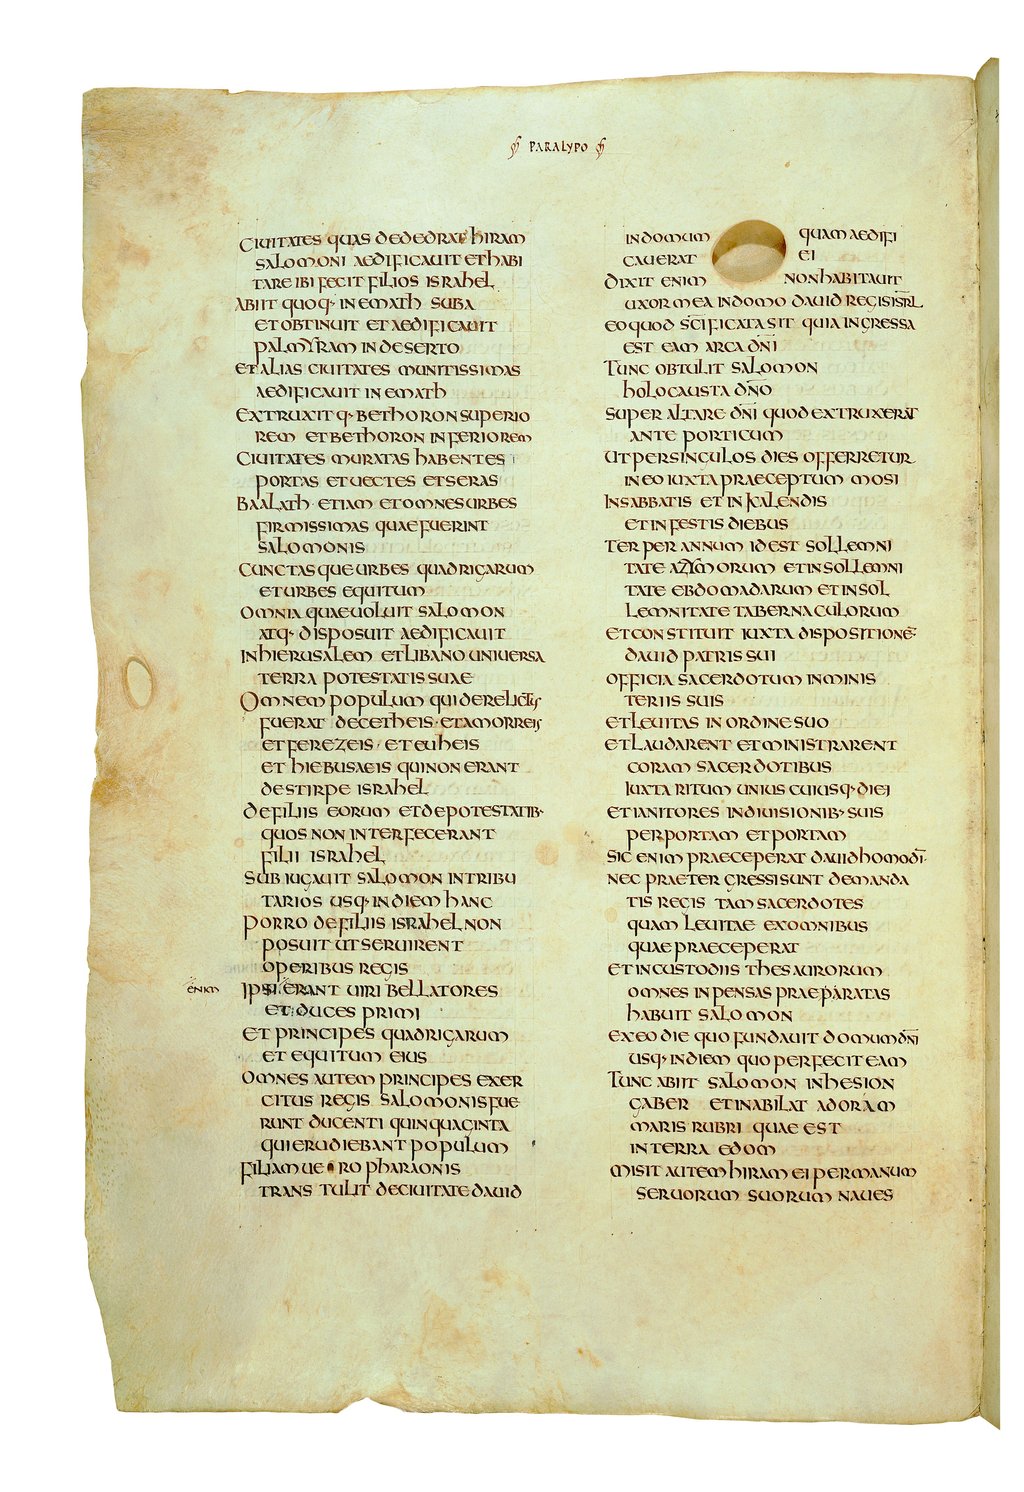 PARALYPO
CIUITATES QUAS DEDERAT HIRAM
SALOMONI AEDIFICAUIT ET HABI
TARE IBI FECIT FILIOS ISRAHEL
ABIIT QUOQ· IN EMATH SUBA
ET OBTINUIT ET AEDIFICAUIT
PALMYRAM IN DESERTO
ET ALIAS CIUITATES MUNITISSIMAS
AEDIFICAUIT IN EMATH
EXTRUXIT Q· BETHORON SUPERIO
REM ET BETHORON INFERIOREM
CIUITATES MURATAS HABENTES
PORTAS ET UECTES ET SERAS
BAALATH ETIAM ET OMNES URBES
FIRMISSIMAS QUAE FUERINT
SALOMONIS
CUNCTASQUE URBES QUADRIGARUM
ET URBES EQUITUM
OMNIA QUAE UOLUIT SALOMON
ATQ· DISPOSUIT AEDIFICAUIT
IN HIERUSALEM ET LIBANO UNIUERSA
TERRA POTESTATIS SUAE
OMNEM POPULUM QUI DERELICTUS
FUERAT DE CETHEIS· ET AMORREIS
ET FEREZEIS· ET EUHEIS
ET HIEBUSAEIS QUI NON ERANT
DE STIRPE ISRAHEL
DE FILIIS EORUM ET DE POTESTATIB·
QUOS NON INTERFECERANT
FILII ISRAHEL
SUBIUGAUIT SALOMON IN TRIBU
TARIOS USQ· IN DIEM HANC
PORRO DE FILIIS ISRAHEL NON
POSUIT UT SERUIRENT
OPERIBUS REGIS
ENIM
IPSI ERANT UIRI BELLATORES
ET DUCES PRIMI
ET PRINCIPES QUADRIGARUM
ET EQUITUM EIUS
OMNES AUTEM PRINCIPES EXER
CITUS REGIS SALOMONIS FUE
RUNT DUCENTI QUINQUAGINTA
QUI ERUDIEBANT POPULUM
FILIAM UERO PHARAONIS
TRANSTULIT DE CIUITATE DAUID
IN DOMUM QUAM AEDIFI
CAUERAT EI
DIXIT ENIM NON HABITAUIT
UXOR MEA IN DOMO DAUID REGIS ISRL̄
EO QUOD SC̄IFICATA SIT QUIA INGRESSA
EST EAM ARCA DN̄I
TUNC OBTULIT SALOMON
HOLOCAUSTA DN̄O
SUPER ALTARE DN̄I QUOD EXTRUXERAT
ANTE PORTICUM
UT PER SINGULOS DIES OFFERRETUR
IN EO IUXTA PRAECEPTUM MOSI
IN SABBATIS ET IN KALENDIS
ET IN FESTIS DIEBUS
TER PER ANNUM ID EST SOLLEMNI
TATE AZYMORUM ET IN SOLLEMNI
TATE EBDOMADARUM ET IN SOL
LEMNITATE TABERNACULORUM
ET CONSTITUIT IUXTA DISPOSITIONĒ
DAUID PATRIS SUI
OFFICIA SACERDOTUM IN MINIS
TERIIS SUIS
ET LEUITAS IN ORDINE SUO
ET LAUDARENT ET MINISTRARENT
CORAM SACERDOTIBUS
IUXTA RITUM UNIUS CUIUSQ· DIEI
ET IANITORES IN DIUISIONIB· SUIS
PER PORTAM ET PORTAM
SIC ENIM PRAECEPERAT DAUID HOMO DĪ·
NEC PRAETERGRESSI SUNT DE MANDA
TIS REGIS TAM SACERDOTES
QUAM LEUITAE EX OMNIBUS
QUAE PRAECEPERAT
ET IN CUSTODIIS THESAURORUM
OMNES INPENSAS PRAEPARATAS
HABUIT SALOMON
EX EO DIE QUO FUNDAUIT DOMUM DN̄I
USQ· IN DIEM QUO PERFECIT EAM
TUNC ABIIT SALOMON IN HESION
GABER ET IN AHILAT AD ORAM
MARIS RUBRI QUAE EST
IN TERRA EDOM
MISIT AUTEM HIRAM EI PER MANUM
SERUORUM SUORUM NAUES